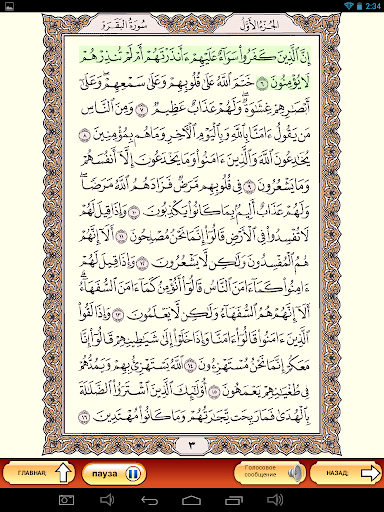 2:34
سُورَةُ البَقَرَةِ
الجُزءُ الأَوَّلُ
إِنَّ الَّذِينَ كَفَرُوا سَوَاءٌ عَلَيْهِمْ ءَأَنذَرْتَهُمْ أَمْ لَمْ تُنذِرْهُمْ
لَا يُؤْمِنُونَ ٦ خَتَمَ اللَّهُ عَلَىٰ قُلُوبِهِمْ وَعَلَىٰ سَمْعِهِمْ ۖ وَعَلَىٰ
أَبْصَارِهِمْ غِشَاوَةٌ ۖ وَلَهُمْ عَذَابٌ عَظِيمٌ ٧ وَمِنَ النَّاسِ
مَن يَقُولُ ءَامَنَّا بِاللَّهِ وَبِالْيَوْمِ الْآخِرِ وَمَا هُم بِمُؤْمِنِينَ ٨
يُخَادِعُونَ اللَّهَ وَالَّذِينَ ءَامَنُوا وَمَا يَخْدَعُونَ إِلَّا أَنفُسَهُمْ
وَمَا يَشْعُرُونَ ٩ فِي قُلُوبِهِم مَّرَضٌ فَزَادَهُمُ اللَّهُ مَرَضًا ۖ
وَلَهُمْ عَذَابٌ أَلِيمٌ بِمَا كَانُوا يَكْذِبُونَ ١٠ وَإِذَا قِيلَ لَهُمْ
لَا تُفْسِدُوا فِي الْأَرْضِ قَالُوا إِنَّمَا نَحْنُ مُصْلِحُونَ ١١ أَلَا إِنَّهُمْ
هُمُ الْمُفْسِدُونَ وَلَٰكِن لَّا يَشْعُرُونَ ١٢ وَإِذَا قِيلَ لَهُمْ
ءَامِنُوا كَمَا ءَامَنَ النَّاسُ قَالُوا أَنُؤْمِنُ كَمَا ءَامَنَ السُّفَهَاءُ ۗ
أَلَا إِنَّهُمْ هُمُ السُّفَهَاءُ وَلَٰكِن لَّا يَعْلَمُونَ ١٣ وَإِذَا لَقُوا
الَّذِينَ ءَامَنُوا قَالُوا ءَامَنَّا وَإِذَا خَلَوْا إِلَىٰ شَيَاطِينِهِمْ قَالُوا إِنَّا
مَعَكُمْ إِنَّمَا نَحْنُ مُسْتَهْزِءُونَ ١٤ اللَّهُ يَسْتَهْزِئُ بِهِمْ وَيَمُدُّهُمْ
فِي طُغْيَانِهِمْ يَعْمَهُونَ ١٥ أُولَٰئِكَ الَّذِينَ اشْتَرَوُا الضَّلَالَةَ
بِالْهُدَىٰ فَمَا رَبِحَت تِّجَارَتُهُمْ وَمَا كَانُوا مُهْتَدِينَ ١٦
٣
ГЛАВНАЯ:
пауза
Голосовое сообщение
НАЗАД: